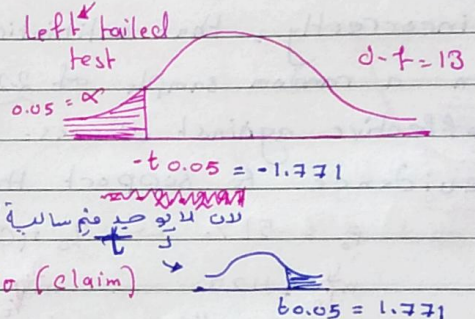 Left tailed
test
d-f = 13
0.05 = α
-t 0.05 = -1.771
لان لا يوجد قيم سالبة
لـ t
σ (claim)
t0.05 = 1.771